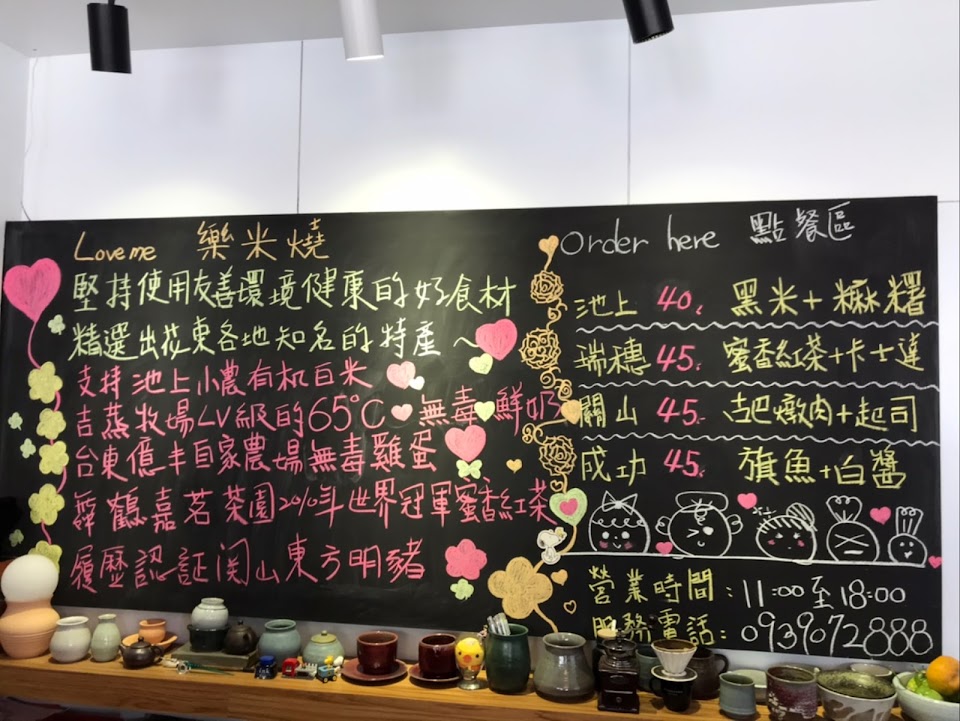 Love me 樂米燒
堅持使用友善環境健康的好食材
精選出花東各地知名的特產～
支持池上小農有机白米
吉蒸牧場LV級的65℃無毒鮮奶
台東億半自家農場無毒雞蛋
舞鶴嘉茗茶園2010年世界冠軍蜜香紅茶
履歷認証関山東方明豬
Order here 點餐區
池上 40. 黑米+麻糬
瑞穗 45. 蜜香紅茶+卡士達
關山 45. 古早燉肉+起司
成功 45. 旗魚+白醬
營業時間:11:00至18:00
服務電話:0939072888